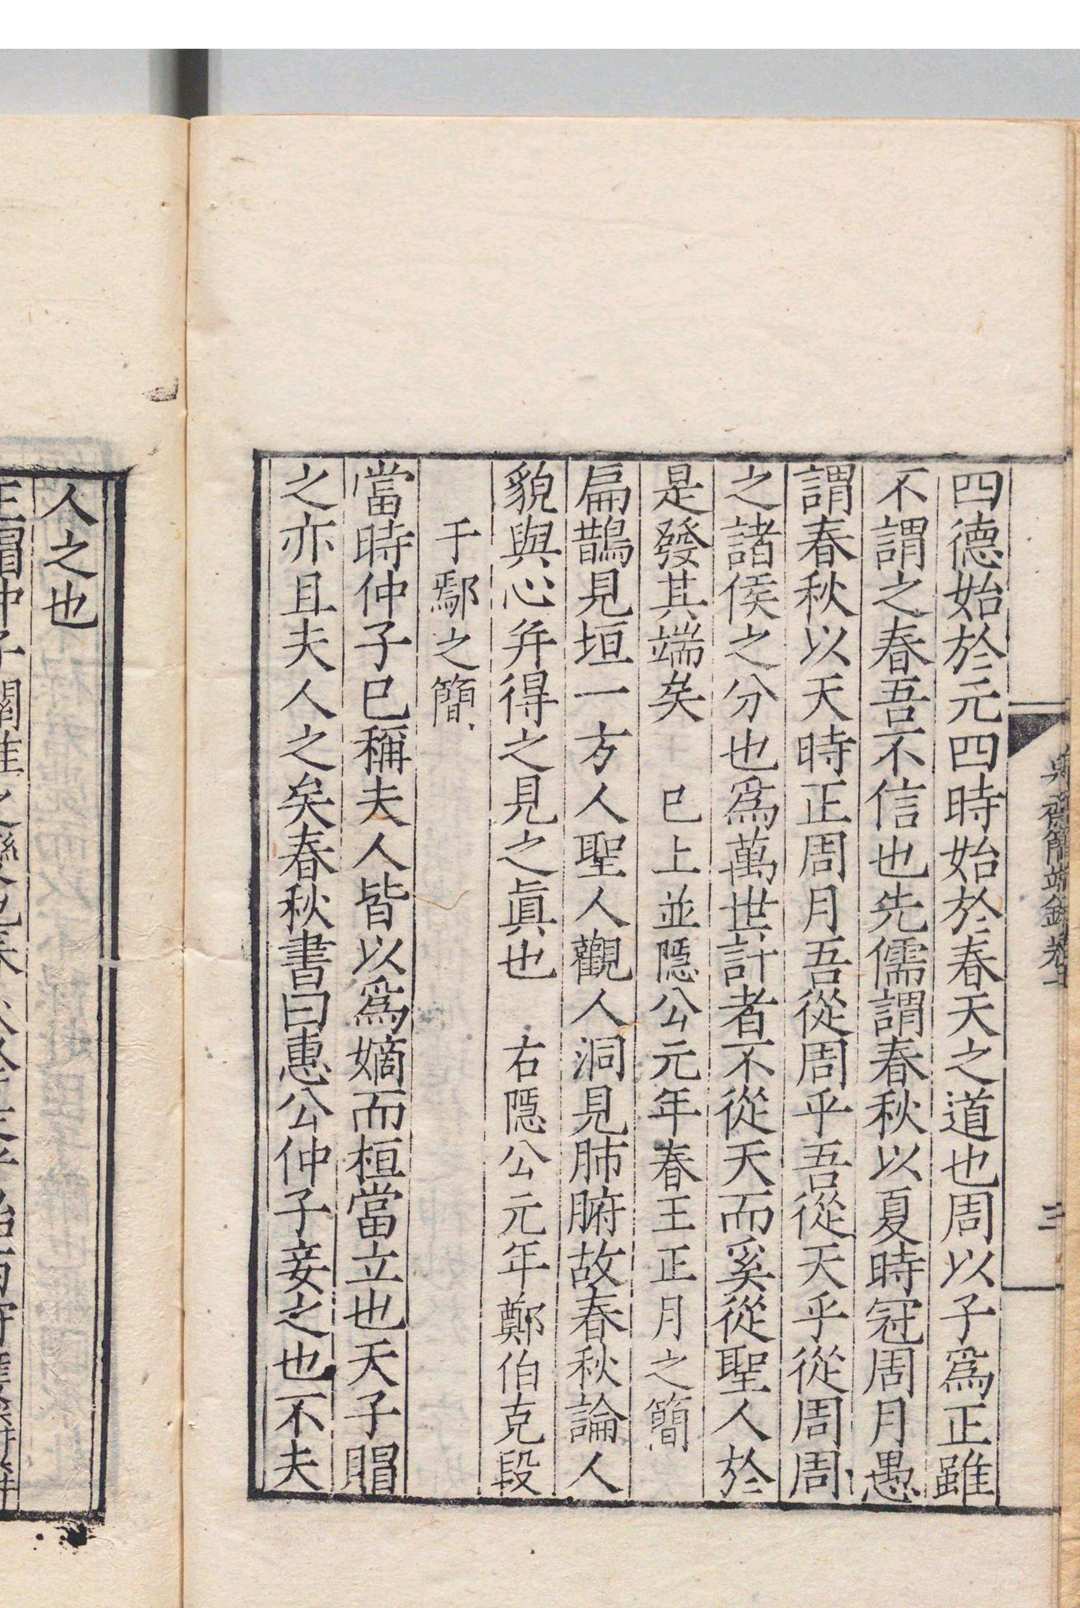 簡端錄
三
四德始於元四時始於春天之道也周以子爲正雖
不謂之春吾不信也先儒謂春秋以夏時冠周月愚
謂春秋以天時正周月吾從周乎吾從天乎從周周
之諸侯之分也爲萬世計者不從天而奚從聖人於
是發其端矣 已上並隱公元年春王正月之簡
扁鵲見垣一方人聖人觀人洞見肺腑故春秋論人
貌與心并得之見之眞也 右隱公元年鄭伯克段
于鄢之簡
當時仲子已稱夫人皆以爲嫡而桓當立也天子賵
之亦且夫人之矣春秋書曰惠公仲子妾之也不夫
人之也